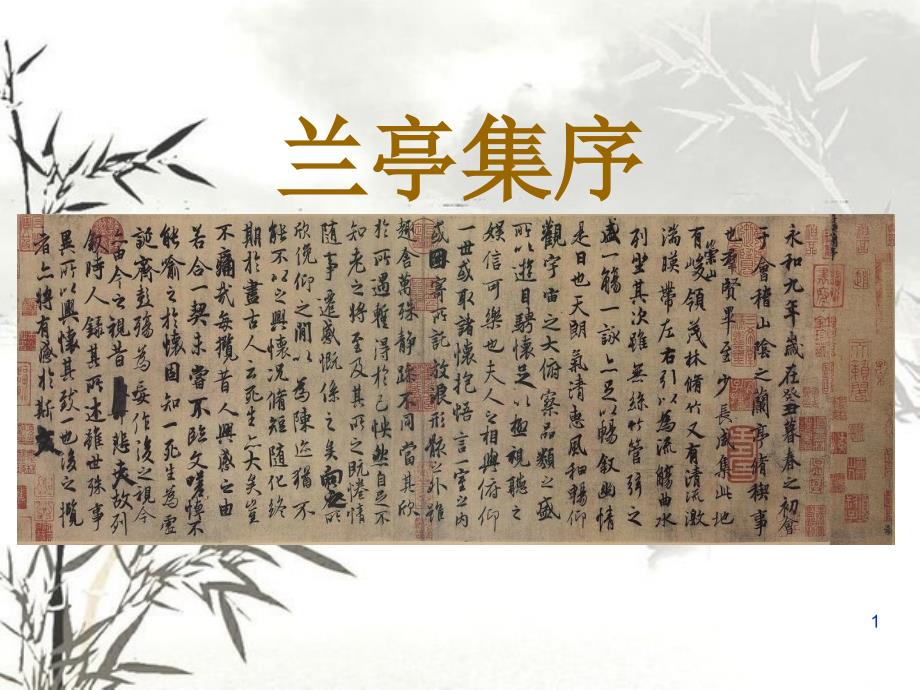 兰亭集序
永和九年歲在癸丑暮春之初會
于會稽山陰之蘭亭脩稧事
也羣賢畢至少長咸集此地
有崇山峻領茂林脩竹又有清流激
湍暎帶左右引以為流觴曲水
列坐其次雖無絲竹管弦之
盛一觴一詠亦足以暢叙幽情
是日也天朗氣清惠風和暢仰
觀宇宙之大俯察品類之盛
所以遊目騁懷足以極視聽之
娛信可樂也夫人之相與俯仰
一世或取諸懷抱悟言一室之內
或因寄所託放浪形骸之外雖
趣舍萬殊靜躁不同當其欣
於所遇蹔得於己怏然自足不
知老之將至及其所之既惓情
隨事遷感慨係之矣向之所
欣俛仰之閒以為陳迹猶不
能不以之興懷況脩短隨化終
期於盡古人云死生亦大矣豈
不痛哉每攬昔人興感之由
若合一契未嘗不臨文嗟悼不
能喻之於懷固知一死生為虛
誕齊彭殤為妄作後之視今
亦由今之視昔悲夫故列
叙時人錄其所述雖世殊事
異所以興懷其致一也後之攬
者亦將有感於斯文
1